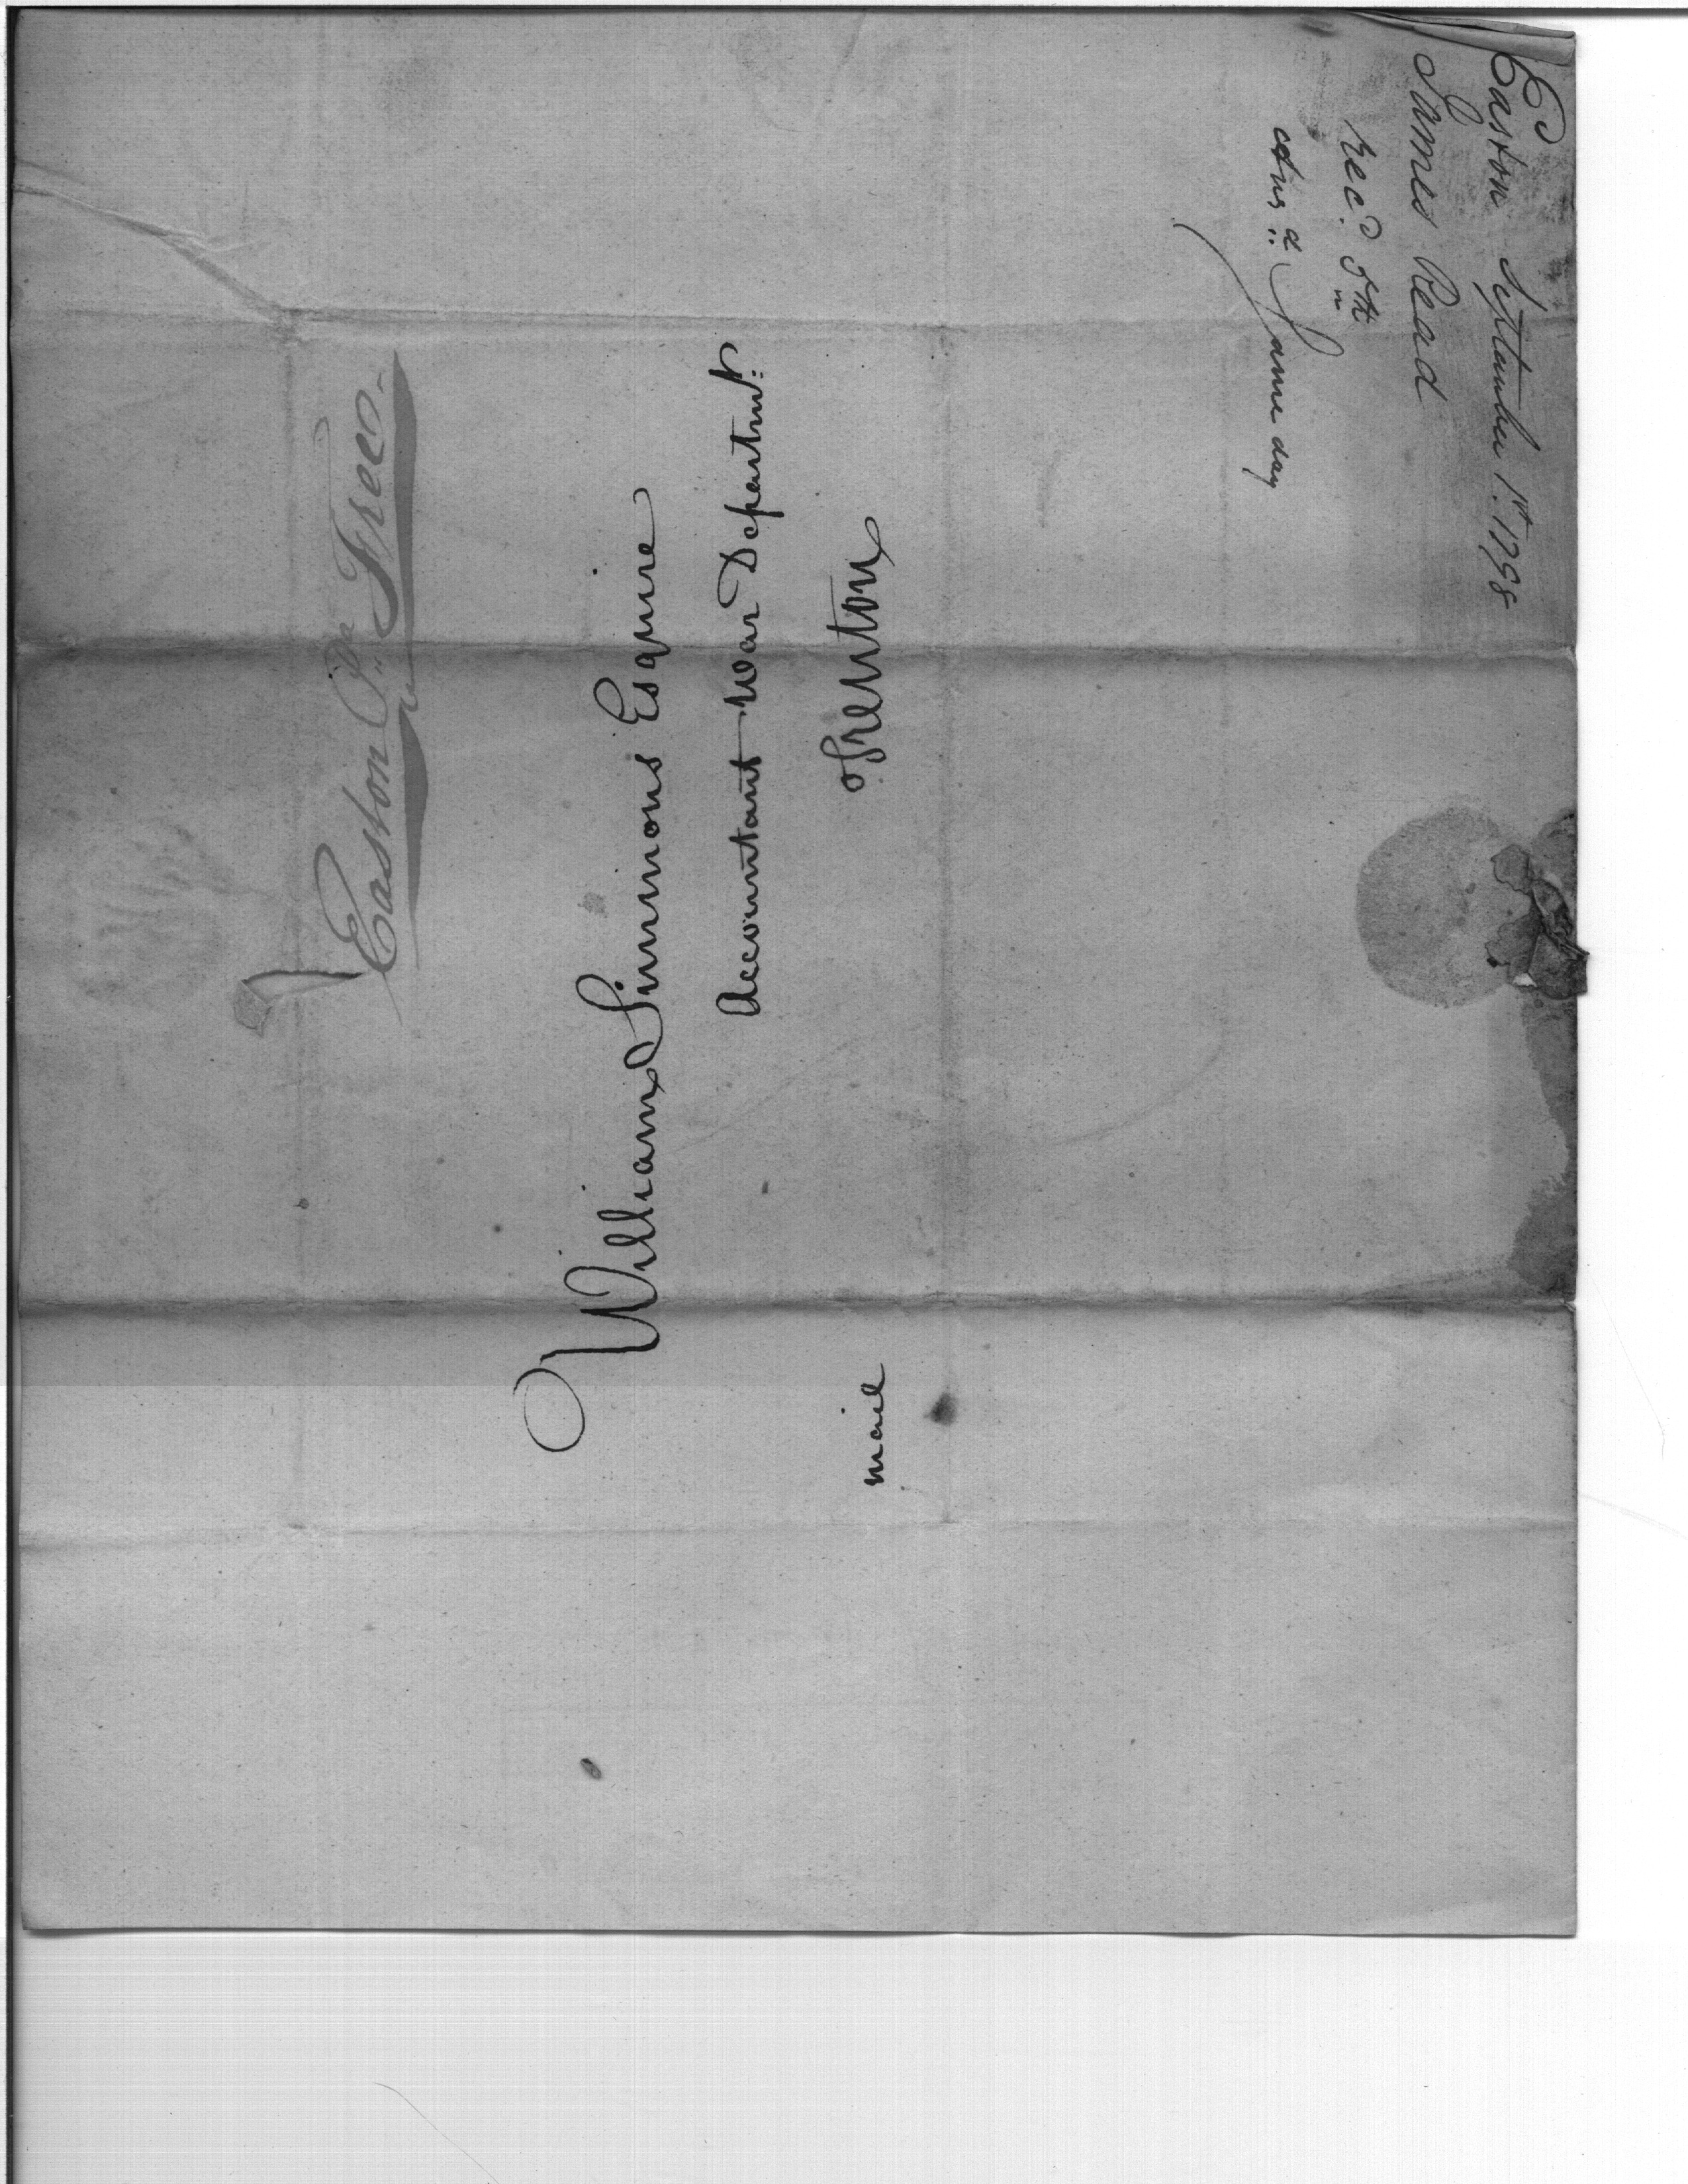 Easton Pa Free
William Simmons Esquire
Accountant War Departmt.
Trenton
mail
Easton September 1st. 1798
James Read
Recd. 5th
Ansd. Same day